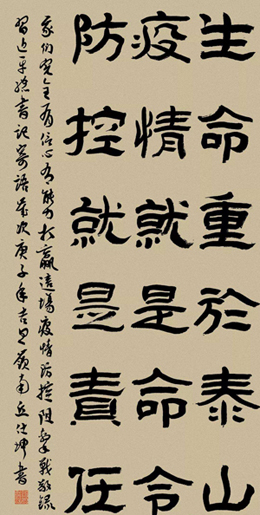 生命重於泰山
疫情就是命令
防控就是責任
我們完全有信心有能力打贏這場疫情防控阻擊戰敬錄
習近平總書記寄語歲次庚子年吉旦嶺南丘仕坤書